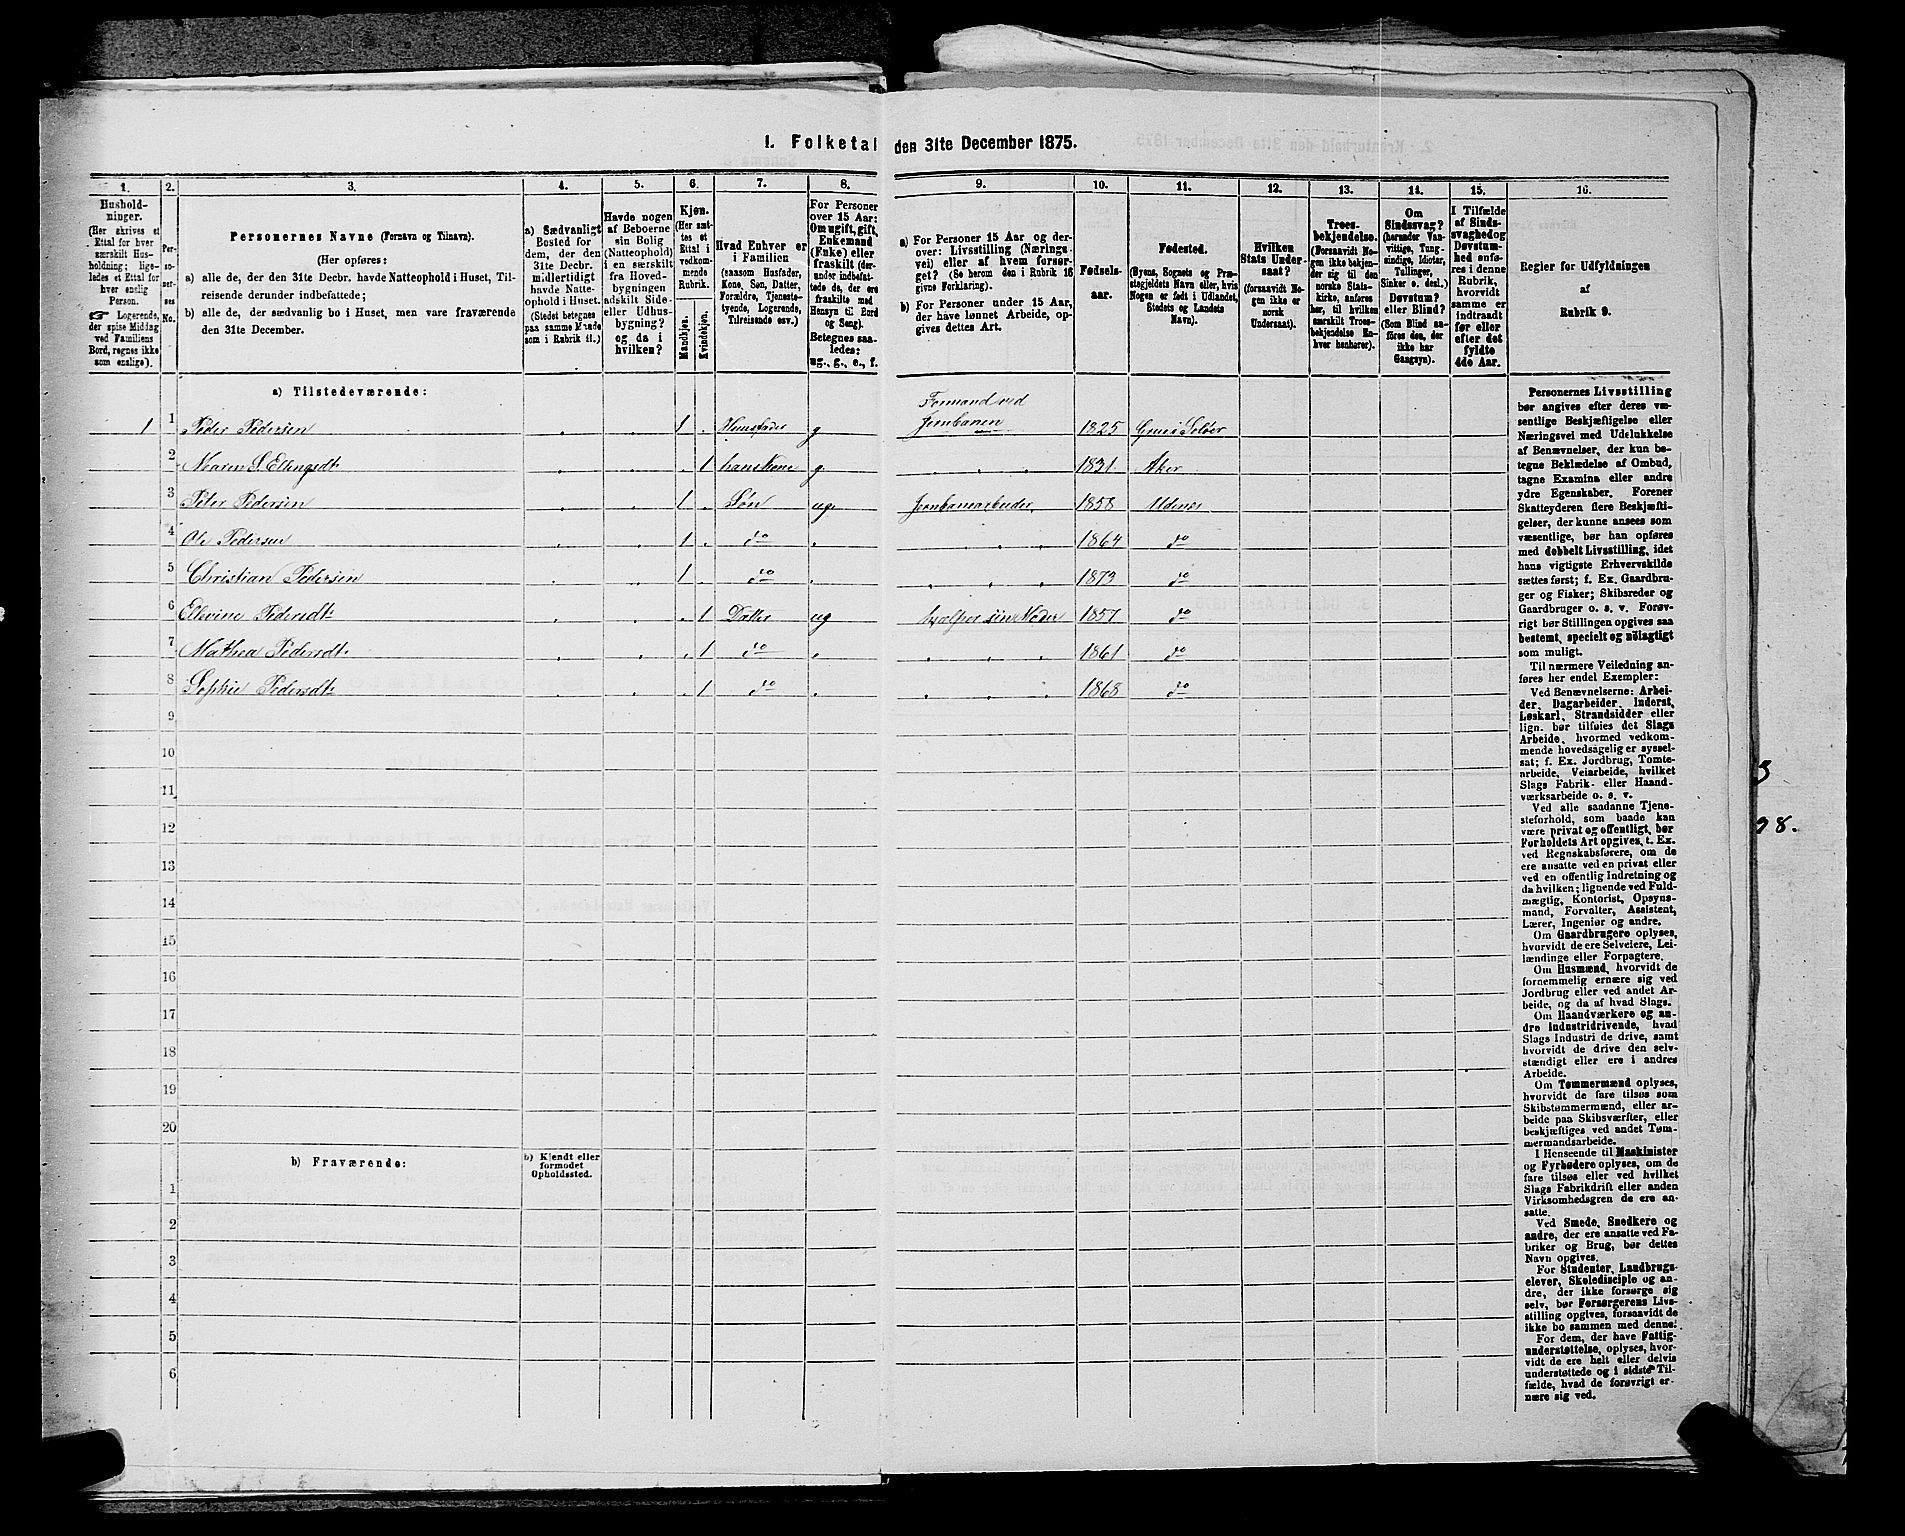 1. Folketal den 31te December 1875.
1.
2.
3.
4.
5.
6.
7.
8.
9.
10.
11.
12.
13.
14.
15.
16.
Hushold-
ninger.
(Her skrives et
Ettal for hver
særskilt Hus-
holdning; lige-
ledes et Ettal for
hver enslig
Person.
☞ Logerende,
der spise Middag
ved Familiens
Bord, regnes ikke
som enslige).
Per-
so-
ner-
nes
No.
Personernes Navne (Fornavn og Tilnavn).
(Her opføres:
a) alle de, der den 31te Decbr. havde Natteophold i Huset, Til-
reisende derunder indbefattede;
b) alle de, der sædvanlig bo i Huset, men vare fraværende
den 31te December.
a) Sædvanligt
Bosted for
dem, der den
31te Decbr.
midlertidigt
havde Natte-
ophold i Huset.
(Stedet betegnes
paa samme Maade
som i Rubrik 11.)
Havde nogen
af Beboerne
sin Bolig
(Natteophold)
i en særskilt
fra Hoved-
bygningen
adskilt Side-
eller Udhus-
bygning?
og da i
hvilken?
Kjøn.
(Her sæt-
tes et
Ettal i
vedkom-
mende
Rubrik.
Mandkjøn.
Kvindekjøn.
Hvad Enhver er
i Familien
(saasom Husfader,
Kone, Søn, Datter,
Forældre, Tjeneste-
tyende, Logerende,
Tilreisende osv.)
For Personer
over 15 Aar:
Om ugift, gift,
Enkemand
(Enke) eller
fraskilt (der-
under indbefat-
tede de, der ere
fraskilte med
Hensyn til Bord
og Seng).
Betegnes saa-
ledes:
ug., g., e., f.
a) For Personer 15 Aar og der-
over: Livsstilling (Nærings-
vei) eller af hvem forsør-
get? (Se herom den i Rubrik 16
givne Forklaring).
b) For Personer under 15 Aar,
der have lønnet Arbeide, op-
gives dettes Art.
Fødsels-
aar.
Fødested.
(Byens, Sognets og Præ-
stegjeldets Navn eller, hvis
Nogen er født i Udlandet,
Stedets og Landets
Navn).
Hvilken
Stats Under-
saat?
(forsaavidt No-
gen ikke er
norsk
Undersaat).
Troes-
bekjendelse.
(Forsaavidt No-
gen ikke bekjen-
der sig til den
norske Stats-
kirke, anføres
her, til hvilken
særskilt Troes-
bekjendelse En-
hver henhører).
Om
Sindssvag?
(herunder Van-
vittige, Tung-
sindige, Idioter,
Tullinger,
Sinker o. desl.)
Døvstum?
eller Blind?
(Som Blind an-
føres den, der
ikke har
Gangsyn).
I Tilfælde
af Sinds-
svaghed og
Døvstum-
hed anfø-
res i denne
Rubrik,
hvorvidt
samme er
indtraadt
før eller
efter det
fyldte
4de Aar.
Regler for Udfyldningen
af
Rubrik 9.
a) Tilstedeværende:
1 1 Peder Pedersen 1 Husfader g Formand ved
Jernbanen 1825 Grue i Solør
2 Maren S. Ellingsdt: 1 hans Kone g 1831 Aker
3 Peter Pedersen 1 Søn ug. Jernbanearbeider 1858 Udenes
4 Ole Pedersen 1 do 1864 do
5 Christian Pedersen 1 do 1873 do
6 Ellevine Pedersdt: 1 Datter ug hjælper sin Moder 1857 do
7 Mathea Pedersdt: 1 do 1861 do
8 Sophie Pedersdt: 1 do 1868 do
9
10
11
12
13
14
15
16
17
18
19
20
b) Fraværende:
b) Kjendt eller
formodet
Opholdssted.
1
2
3
4
5
6
Personernes Livsstilling
bør angives efter deres væ-
sentlige Beskjæftigelse eller
Næringsvei med Udelukkelse
af Benævnelser, der kun be-
tegne Beklædelse af Ombud,
tagne Examina eller andre
ydre Egenskaber. Forener
Skatteyderen flere Beskjæfti-
gelser, der kunne ansees som
væsentlige, bør han opføres
med dobbelt Livsstilling, idet
hans vigtigste Erhvervskilde
sættes først; f. Ex. Gaardbru-
ger og Fisker; Skibsreder og
Gaardbruger o. s. v. Forøv-
rigt bør Stillingen opgives saa
bestemt, specielt og nøiagtigt
som muligt.
Til nærmere Veiledning an-
føres her endel Exempler:
Ved Benævnelserne: Arbei-
der, Dagarbeider, Inderst,
Løskarl, Strandsidder eller
lign. bør tilføies det Slags
Arbeide, hvormed vedkom-
mende hovedsagelig er syssel-
sat; f. Ex. Jordbrug, Tomte-
arbeide, Veiarbeide, hvilket
Slags Fabrik- eller Haand-
værksarbeide o. s. v.
Ved alle saadanne Tjene-
steforhold, som baade kan
være privat og offentligt, bør
Forholdets Art opgives, t. Ex.
ved Regnskabsførere, om de
ere ansatte ved en privat eller
ved en offentlig Indretning og
da hvilken; lignende ved Fuld-
mægtig, Kontorist, Opsyns-
mand, Forvalter, Assistent,
Lærer, Ingeniør og andre.
Om Gaardbrugere oplyses,
hvorvidt de ere Selveiere, Lei-
lændinge eller Forpagtere.
Om Husmænd, hvorvidt de
fornemmelig ernære sig ved
Jordbrug eller ved andet Ar-
beide, og da af hvad Slags.
Om Haandværkere og an-
dre Industridrivende, hvad
Slags Industri de drive, samt
hvorvidt de drive den selv-
stændigt eller ere i andres
Arbeide.
Om Tømmermænd oplyses,
hvorvidt de fare tilsøs som
Skibstømmermænd, eller ar-
beide paa Skibsværfter, eller
beskjæftiges ved andet Tøm-
mermandsarbeide.
I Henseende til Maskinister
og Fyrbødere oplyses, om de
fare tilsøs eller ved hvilket
Slags Fabrikdrift eller anden
Virksomhedsgren de ere an-
satte.
Ved Smede, Snedkere og
andre, der ere ansatte ved Fa-
briker og Brug, bør dettes
Navn opgives.
For Studenter, Landbrugs-
elever, Skoledisciple og an-
dre, der ikke forsørge sig
selv, bør Forsørgerens Livs-
stilling opgives, forsaavidt de
ikke bo sammen med denne.
For dem, der have Fattig-
understøttelse, oplyses, hvor-
vidt de ere helt eller delvis
understøttede og i sidste Til-
fælde, hvad de forøvrigt er-
nære sig ved.